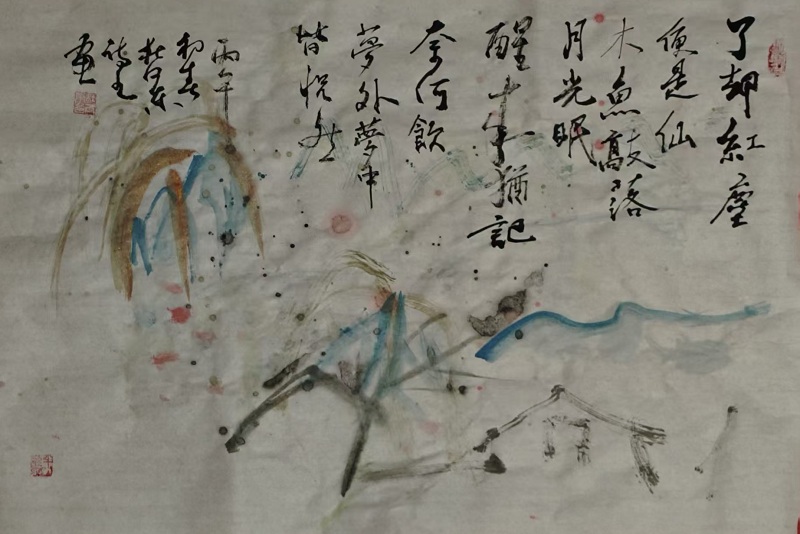 了却紅塵
便是仙
木魚敲落
月光眠
醒来猶記
奈何飲
夢外夢中
皆恍然
丙午
初春
畫